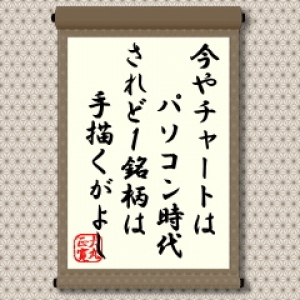 今やチャートは
パソコン時代
されど1銘柄は
手描くがよし